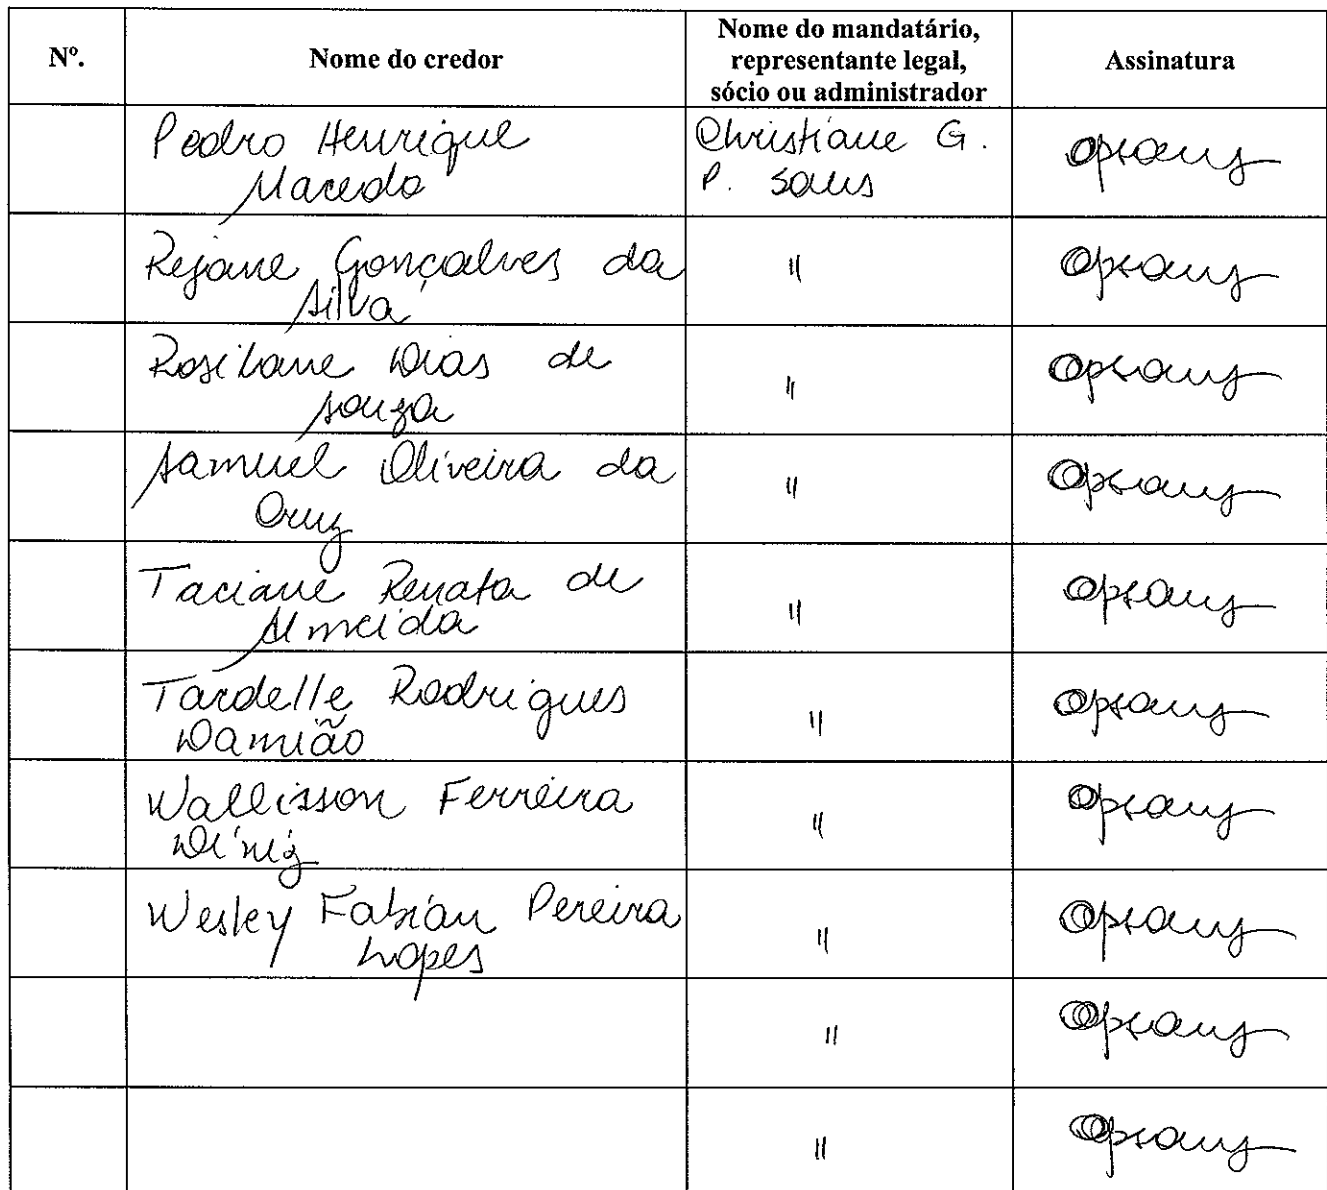 Nº. Nome do credor Nome do mandatário, representante legal, sócio ou administrador Assinatura
Pedro Henrique Christiane G.
Macedo P.
Rejane Gonçalves da "
Silva
Rosilane Dias de "
Souza
Samuel Oliveira da "
Cruz
Taciane Renata de "
Almeida
Tardelle Rodrigues "
Damião
Wallisson Ferreira "
Diniz
Wesley Fabián Pereira "
Lopes
"
"